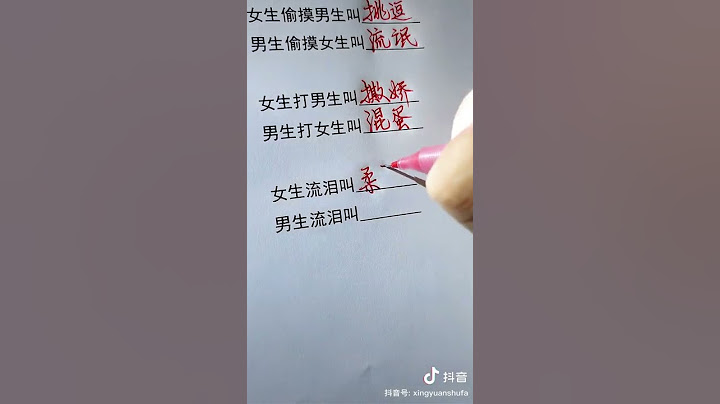 女生偷摸男生叫挑逗
男生偷摸女生叫流氓
女生打男生叫撒娇
男生打女生叫混蛋
女生流泪叫柔
男生流泪叫
抖音
抖音号: xingyuanshufa